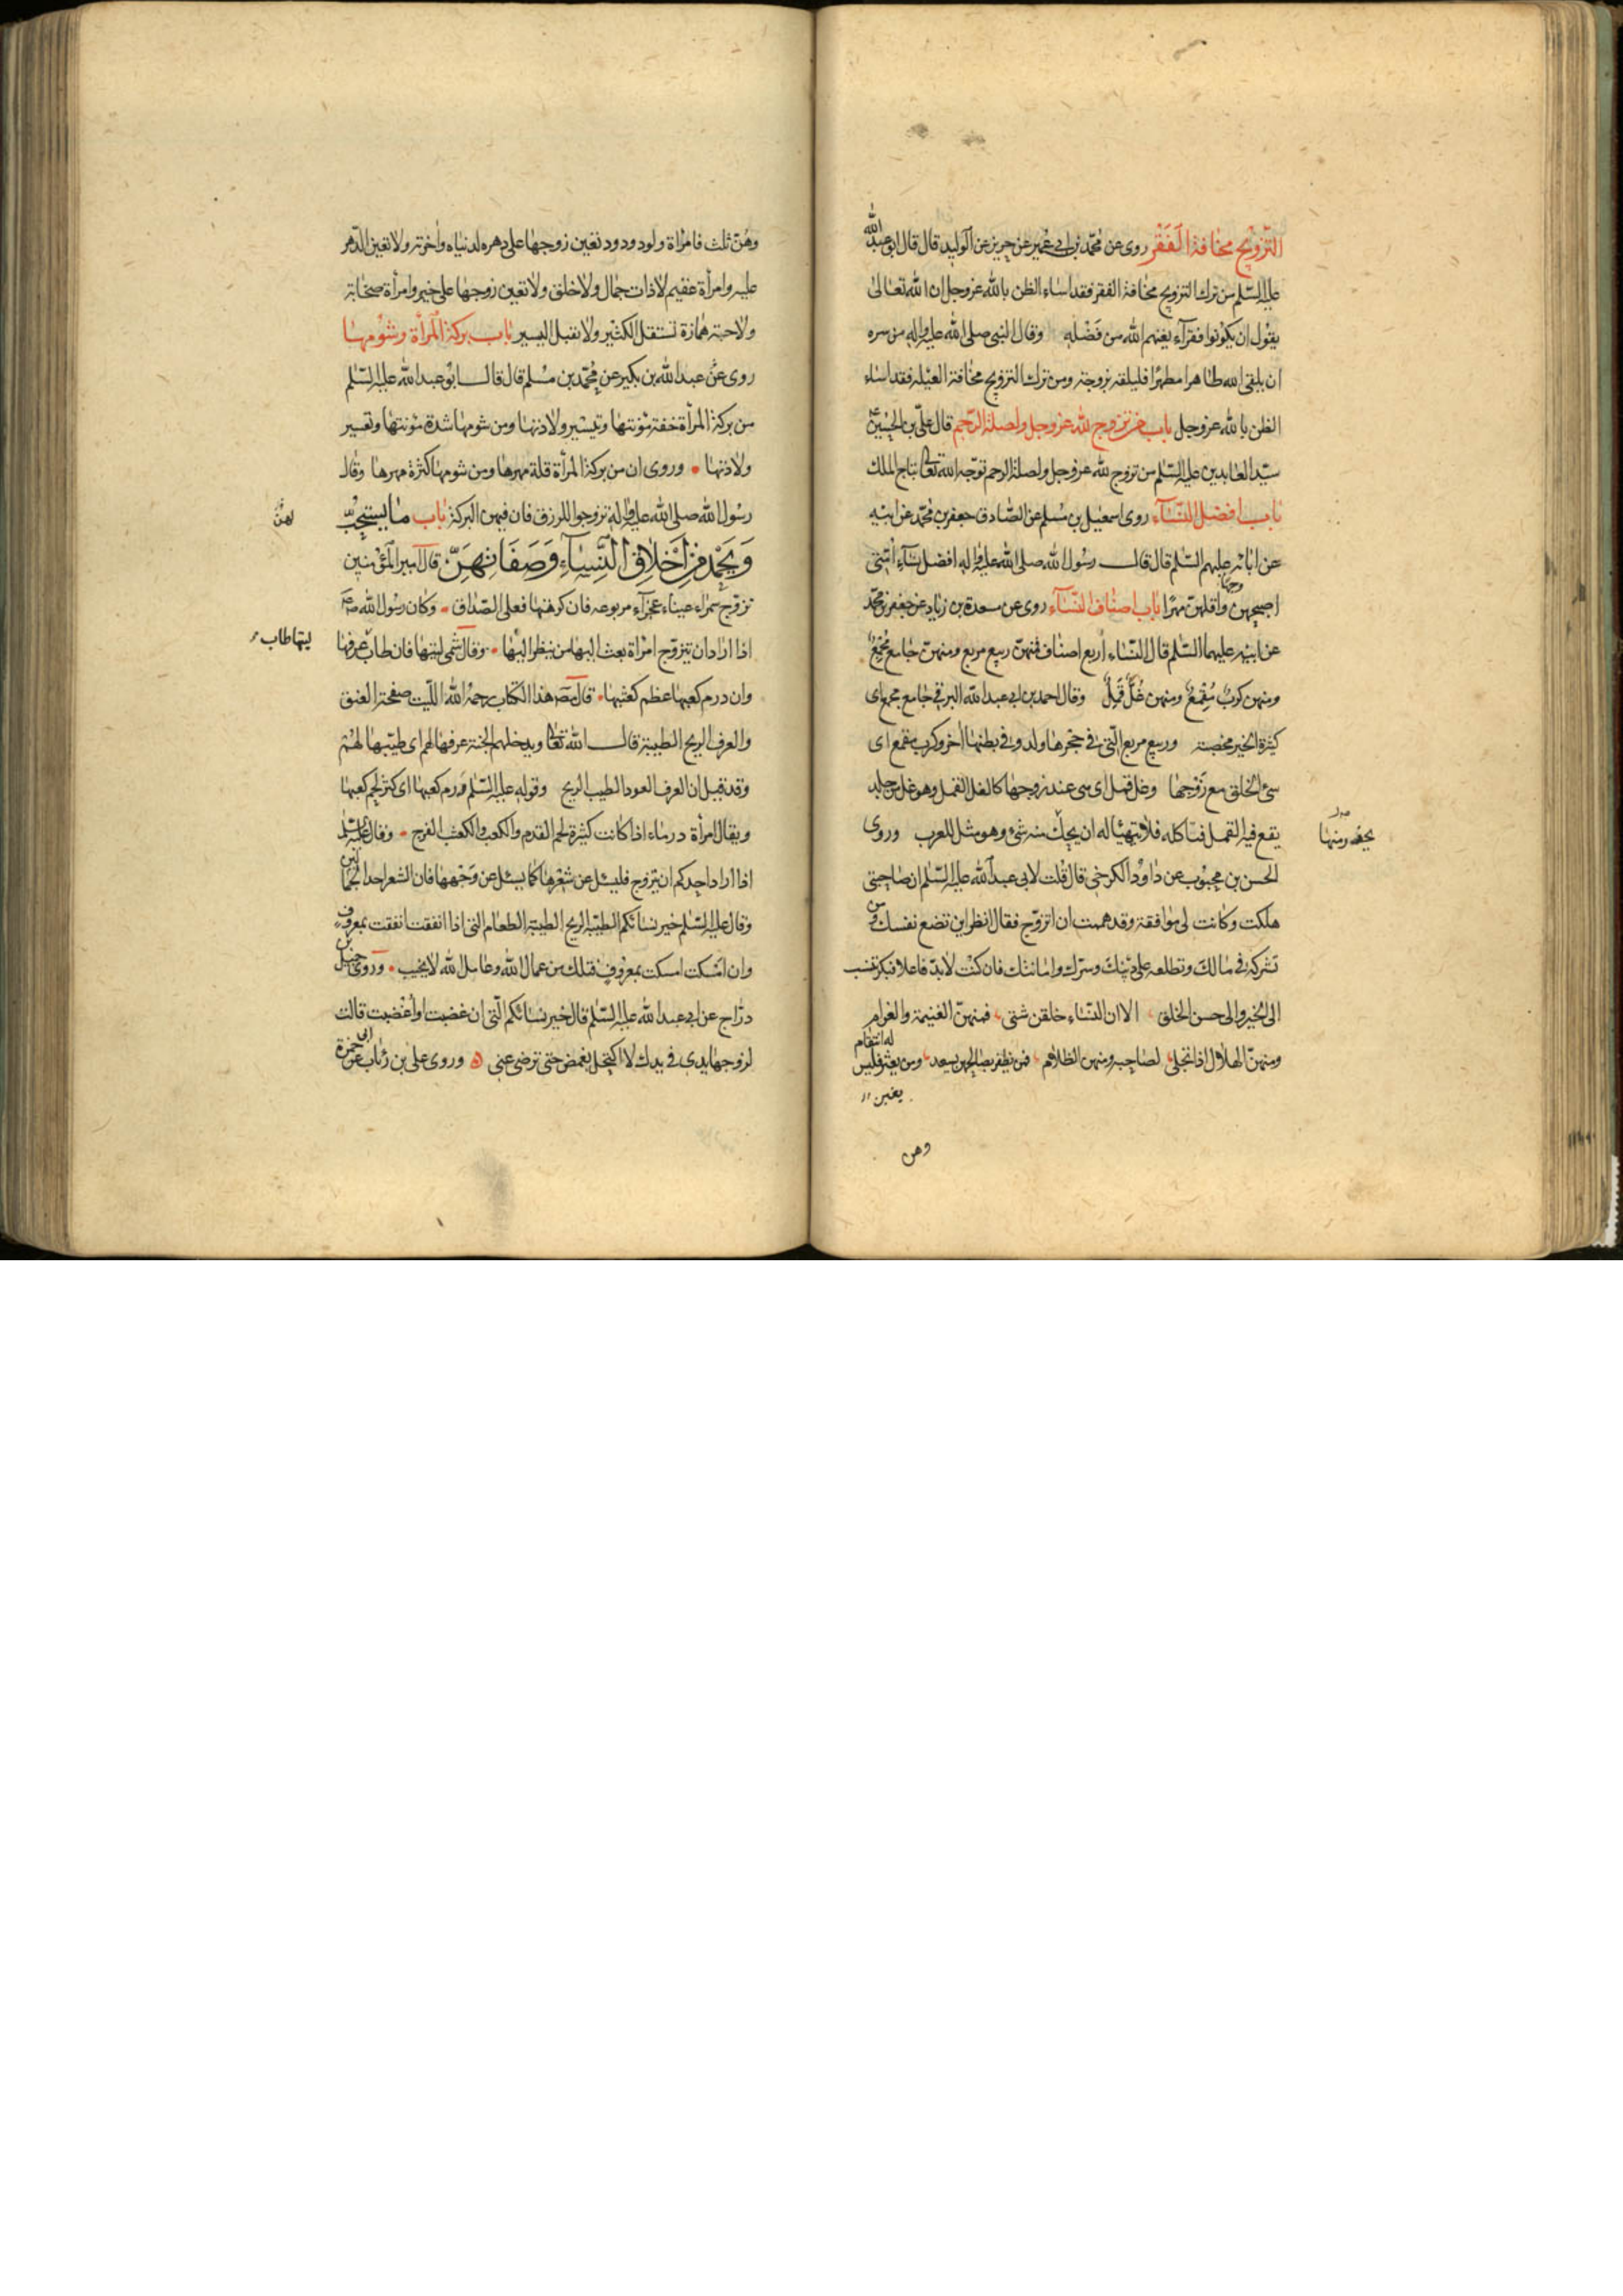 التزويج مخافة الفقر روى عن محمد بن ابى عمير عن حريز عن الوليد قال قال ابو عبد الله
عليه السلم من ترك التزويج مخافة الفقر فقد اساء الظن بالله عز وجل ان الله تعالى
يقول ان يكونوا فقرآء يغنهم الله من فضله وقال النبى صلى الله عليه واله من سره
ان يلقى الله طاهرا مطهرا فليلقه بزوجة ومن ترك التزويج مخافة العيله فقد اساء
الظن بالله عز وجل باب من تزوج لله عز وجل ولصلة الرحم قال على بن الحسين
سيد العابدين عليه السلم من تزوج لله عز وجل ولصلة الرحم توجه الله تعالى بتاج الملك
باب افضل النسآء روى اسمعيل بن مسلم عن الصادق جعفر بن محمد عن ابيه
عن ابائه عليهم السلم قال قال رسول الله صلى الله عليه واله افضل نسآء امتى
اصبحهن وجها واقلهن مهرا باب اصناف النسآء روى عن مسعدة بن زياد عن جعفر بن محمد
عن ابيه عليهما السلم قال النساء اربع اصناف فمنهن ربيع مربع ومنهن جامع مجمع
ومنهن كرب مقمع ومنهن غل قمل وقال احمد بن ابى عبد الله البرقى جامع مجمع اى
كثيرة الخير مخصبة وربيع مربع التى فى حجرها ولد وفى بطنها اخر وكرب مقمع اى
سيئ الخلق مع زوجها وغل قمل اى هى عند زوجها كالغل القمل وهو غل من جلد
يقع فيه القمل فياكله فلا يتهيا له ان يحك منه شئ وهو مثل للعرب وروى
يحذر منها
الحسن بن محبوب عن داود الكرخى قال قلت لابى عبد الله عليه السلم ان صاحبتى
هلكت وكانت لى موافقة وقد هممت ان اتزوج فقال انظر اين تضع نفسك ومن
تشركه فى مالك وتطلعه على دينك وسرك وامانتك فان كنت لابد فاعلا فبكر تنسب
الى الخير والى حسن الخلق الا ان النساء خلقن شتى فمنهن الغنيمة والغرام
ومنهن الهلال اذا تجلى لصاحبه ومنهن الظلام فمن يظفر بصالحهن يسعد ومن يغبن فليس
له انتقام
يغبن
وهن
وهن ثلث فامراة ولود ودود تعين زوجها على دهره لدنياه واخرته ولا تعين الدهر
عليه وامرأة عقيم لا ذات جمال ولا خلق ولا تعين زوجها على خير وامرأة صخابة
ولاجة همازة تستقل الكثير ولا تقبل اليسير باب بركة المرأة وشومها
روى عن عبد الله بن بكير عن محمد بن مسلم قال قال ابو عبد الله عليه السلم
من بركة المرأة خفة مؤنتها وتيسير ولادتها ومن شومها شدة مؤنتها وتعسير
ولادتها وروى ان من بركة المرأة قلة مهرها ومن شومها كثرة مهرها وقال
رسول الله صلى الله عليه واله تزوجوا للرزق فان فيهن البركة باب ما يستحب
لهن
ويحمد من اخلاق النسآء وصفاتهن قال امير المؤمنين
تزوج سمراء عيناء عجزآء مربوعه فان كرهتها فعلى الصداق وكان رسول الله ص
اذا اراد ان يتزوج امراة بعث اليها من ينظر اليها وقال شمى ليتها فان طاب عرفها
ليتها طاب
وان درم كعبها عظم كعثبها قال مص هذا الكتاب رحمه الله الليت صفحة العنق
والعرف الريح الطيبة قال الله تعالى ويدخلهم الجنة عرفها لهم اى طيبها لهم
وقد قيل ان العرف العود الطيب الريح وقوله عليه السلم درم كعبها اى كثر لحم كعبها
ويقال امرأة درماء اذا كانت كثيرة لحم القدم والكعب والكعثب الفرج وقال عليه السلم
اذا اراد احدكم ان يتزوج فليسئل عن شعرها كما يسئل عن وجهها فان الشعر احد الجمالين
وقال عليه السلم خير نسائكم الطيبة الريح الطيبة الطعام التى اذا انفقت انفقت بمعروف
وان امسكت امسكت بمعروف فتلك من عمال الله وعامل الله لا يخيب وروى جميل بن
دراج عن ابى عبد الله عليه السلم قال خير نسائكم التى ان غضبت او اغضبت قالت
لزوجها يدى فى يدك لا اكتحل بغمض حتى ترضى عنى وروى على بن رئاب عن ابى حمزة